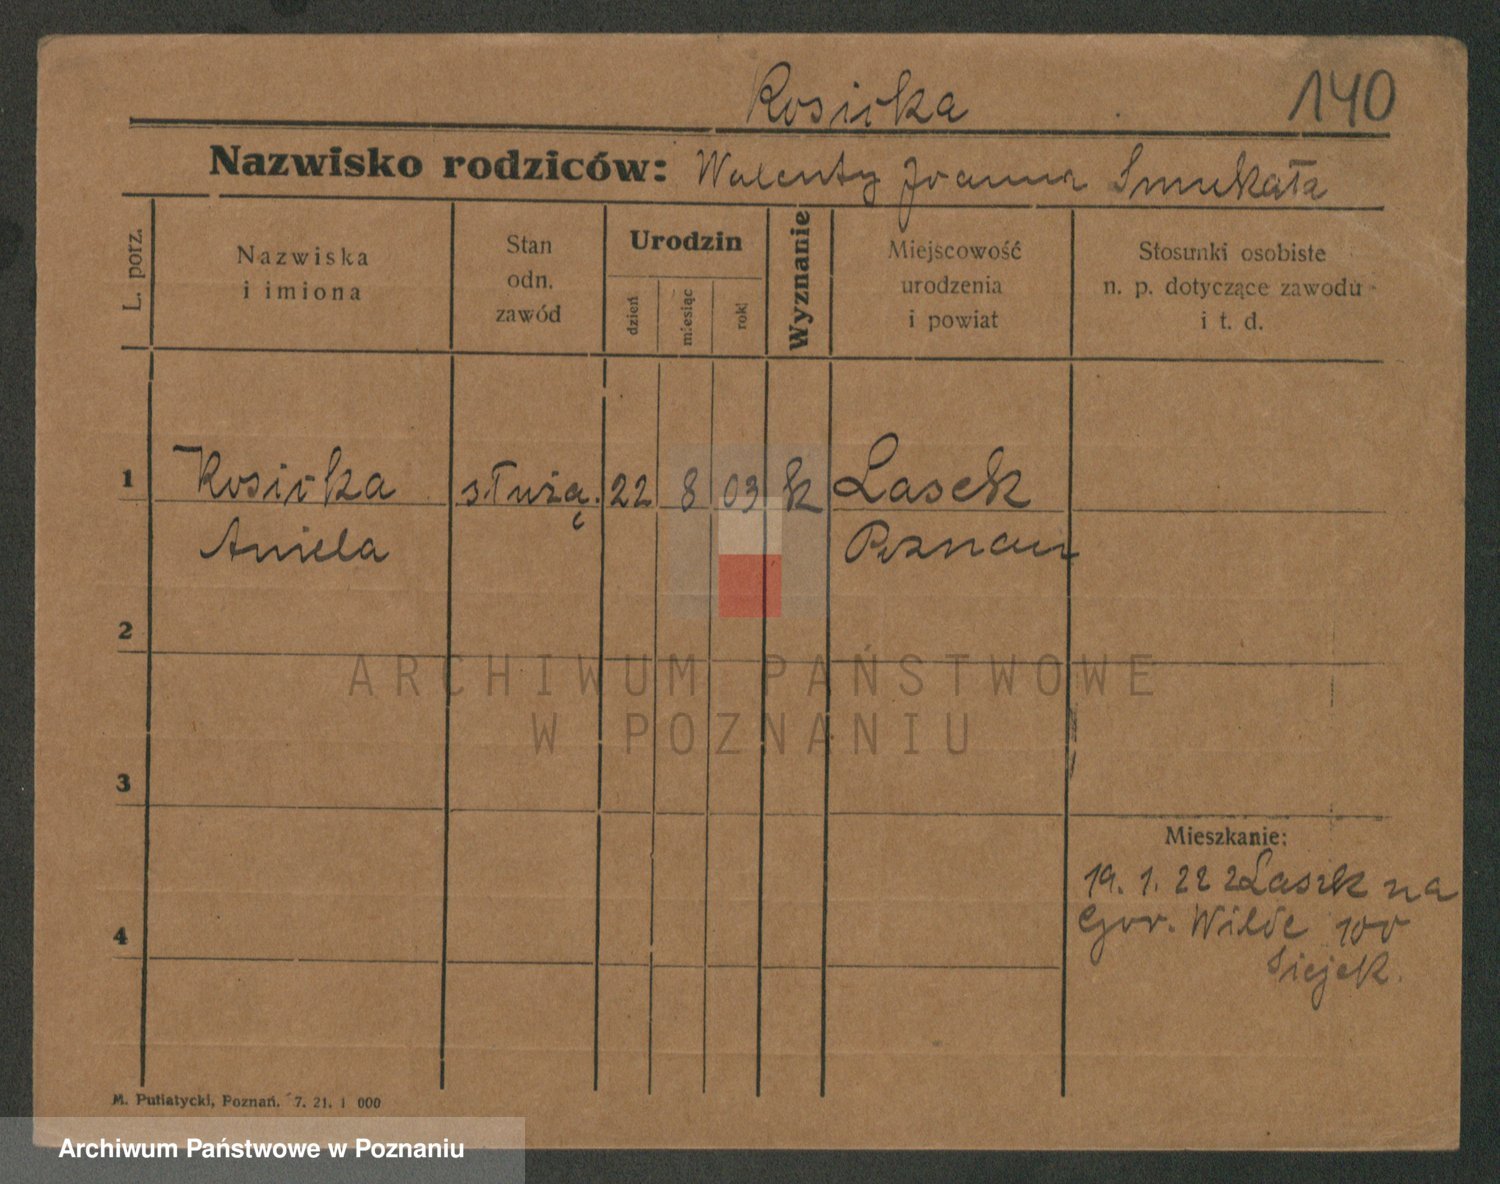 Rosicka
140
Nazwisko rodziców: Walenty Joanna Smukała
L. porz.
Nazwiska
i imiona
Stan
odn.
zawód
Urodzin
dzień
miesiąc
rok
Wyznanie
Miejscowość
urodzenia
i powiat
Stosunki osobiste
n. p. dotyczące zawodu
i t. d.
1 Rosicka służą. 22 8 03 k Lasek
Aniela Poznań
2
ARCHIWUM PAŃSTWOWE
W POZNANIU
3
Mieszkanie:
19. 1. 22 z Lasek na
Gór. Wilde 100
Siejek.
4
M. Putiatycki, Poznań. 7. 21. 1 000
Archiwum Państwowe w Poznaniu